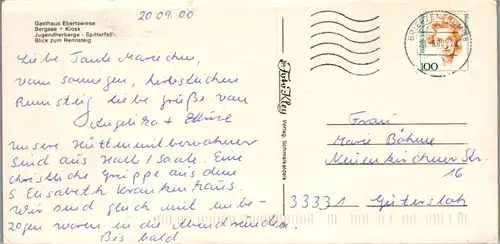 20.09.00
Gasthaus Ebertswiese
Bergsee - Kiosk
Jugendherberge - Spitterfall
Blick zum Rennsteig
Liebe Tante Mariechen,
vom sonnigen, herbstlichen
Rennstieg liebe Grüße von
Angelika +
unsere Hüttenmitbewohner
sind aus Halle / Saale. Eine
christliche Gruppe aus dem
S Elisabeth Krankenhaus.
Wir sind gleich mit einbe-
zogen waren in die Abendrunden
Bis bald
Verlag, Schmalkalden
BRIEFZENTRUM
100
Frau
Marie Böhme
Neuenkirchner Str.
16
33331 Gütersloh